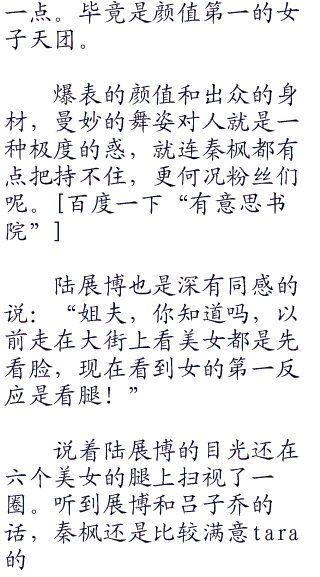 一点。毕竟是颜值第一的女
子天团。
爆表的颜值和出众的身
材，曼妙的舞姿对人就是一
种极度的惑，就连秦枫都有
点把持不住，更何况粉丝们
呢。[百度一下“有意思书
院”]
陆展博也是深有同感的
说：“姐夫，你知道吗，以
前走在大街上看美女都是先
看脸，现在看到女的第一反
应是看腿！”
说着陆展博的目光还在
六个美女的腿上扫视了一
圈。听到展博和吕子乔的
话，秦枫还是比较满意tara
的